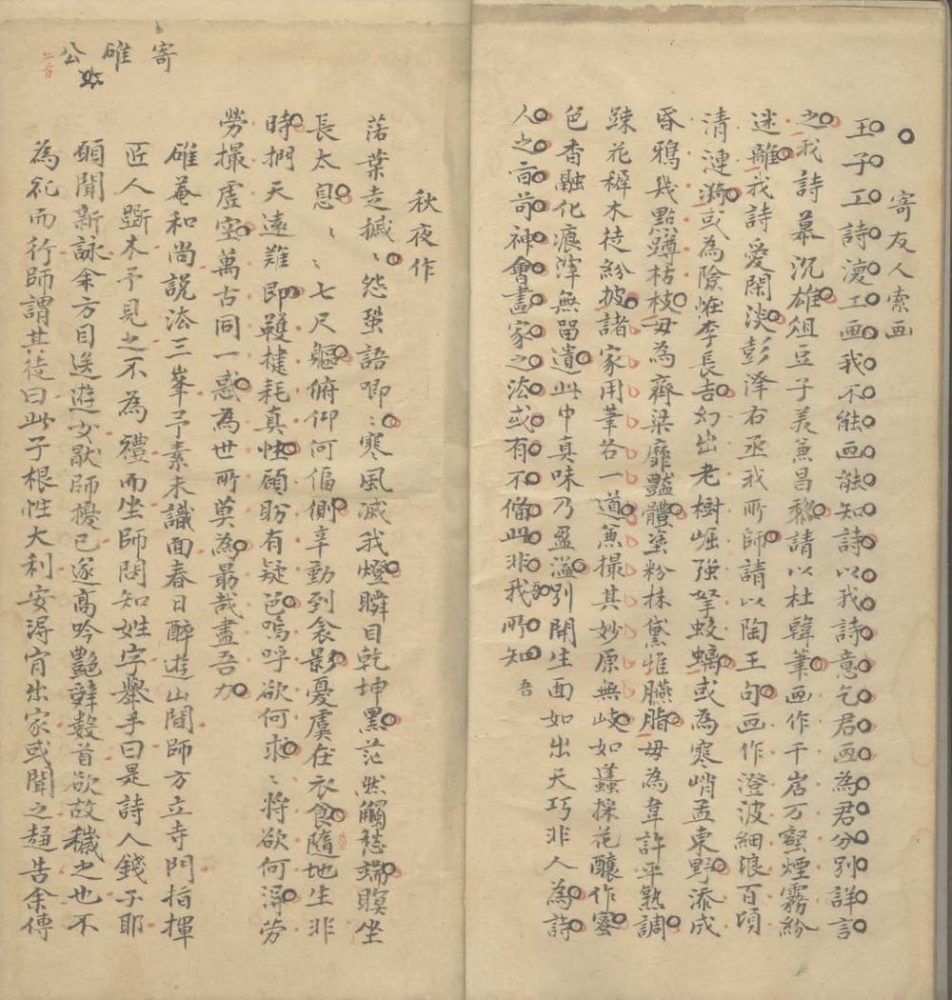 寄友人索画
王子工詩濅工画我不能画能知詩以我詩意乞君画為君分別詳言
之我詩慕沉雄俎豆子美兼昌黎請以杜韓筆画作千岩万壑煙霧紛
迷離我詩愛閑淡彭澤右丞我所師請以陶王句画作澄波細浪百頃
清漣漪或為險恠李長吉幻出老樹崛强拏蛟螭或為寒峭孟東野添成
昏鴉幾點蹲枯枝毋為齊梁靡豔體塗粉抹黛堆臙脂毋為韋許平熟調
踈花穉木徒紛披諸家用筆各一道兼撮其妙原無歧如蜂採花釀作蜜
色香融化痕滓無留遺此中真味乃盈溢別開生面如出天巧非人為詩
人之言神會畫家之法或有不偹此非我所知 吾
秋夜作
落葉走撼〻怨蛩語唧〻寒風滅我燈瞬目乾坤黑茫然觸愁端瞑坐
長太息〻〻七尺軀俯仰何偪側辛勤到衾影憂虞在衣食隨地生非
時捫天遠難即鞿揵耗真性顧盼有疑色嗚呼欲何求〻將欲何淂劳
勞撮虛空萬古同一惑為世所莫為勗哉盡吾力
寄碓公 二首
碓菴和尚説法三峯予素未識面春日醉遊山間師方立寺門指揮
匠人斵木予見之不為禮而坐師問知姓字舉手曰是詩人錢子耶
願聞新詠余方目送遊女厭師擾已遂高吟艷辭數首欲故穢之也不
為礼而行師謂其徒曰此子根性大利安淂肯出家或聞之趨告余傳